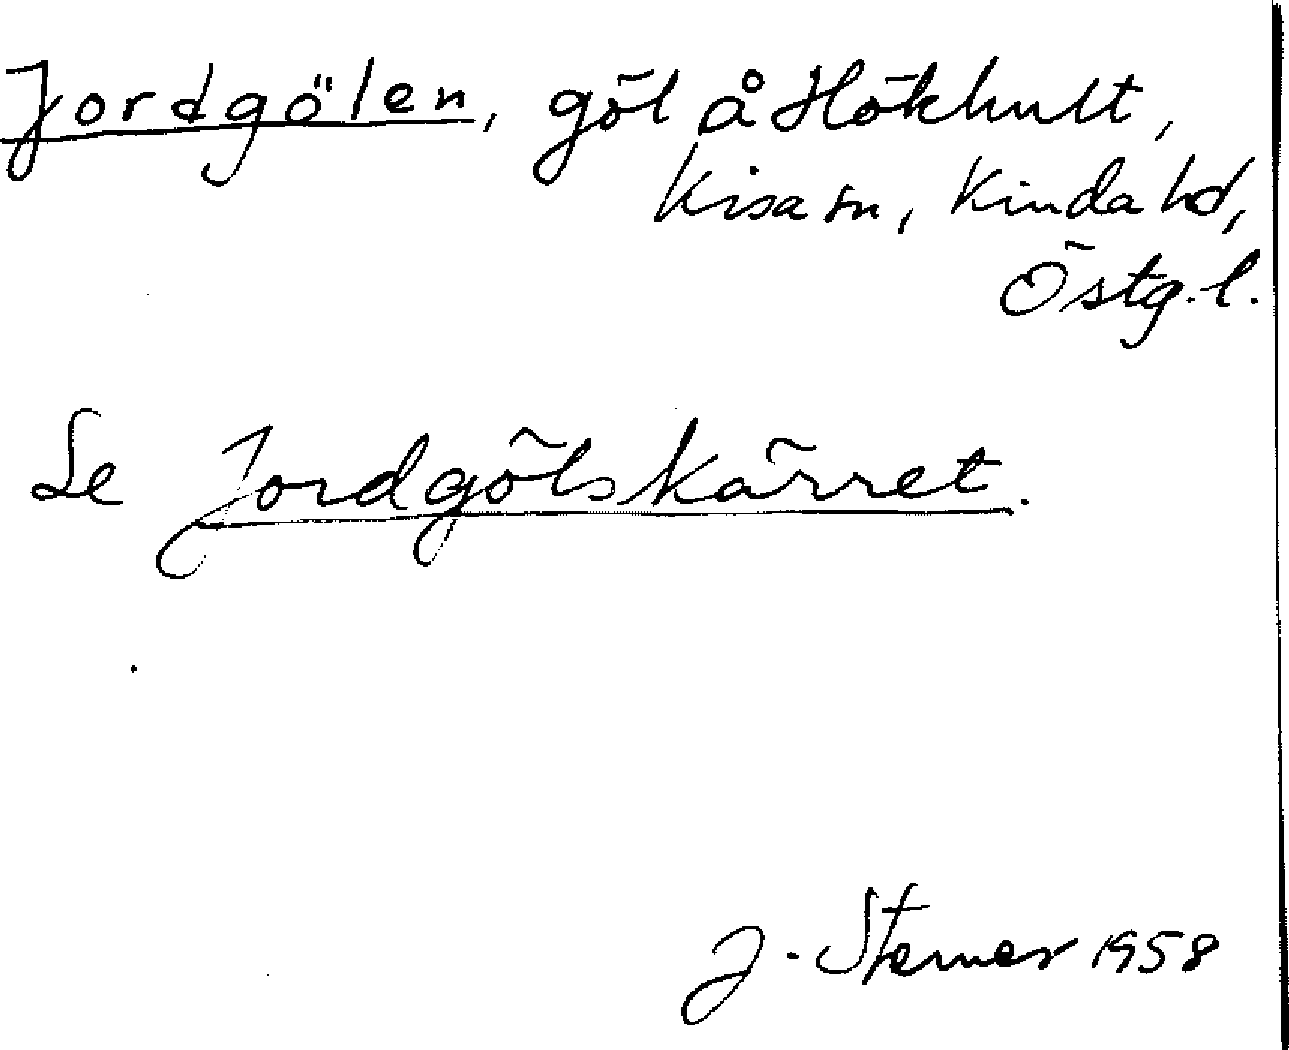 Jordgölen, göl å Hökhult,
Kisa sn, Kinda hd,
Östg. l.
Se Jordgölskärret.
J. Sterner 1958